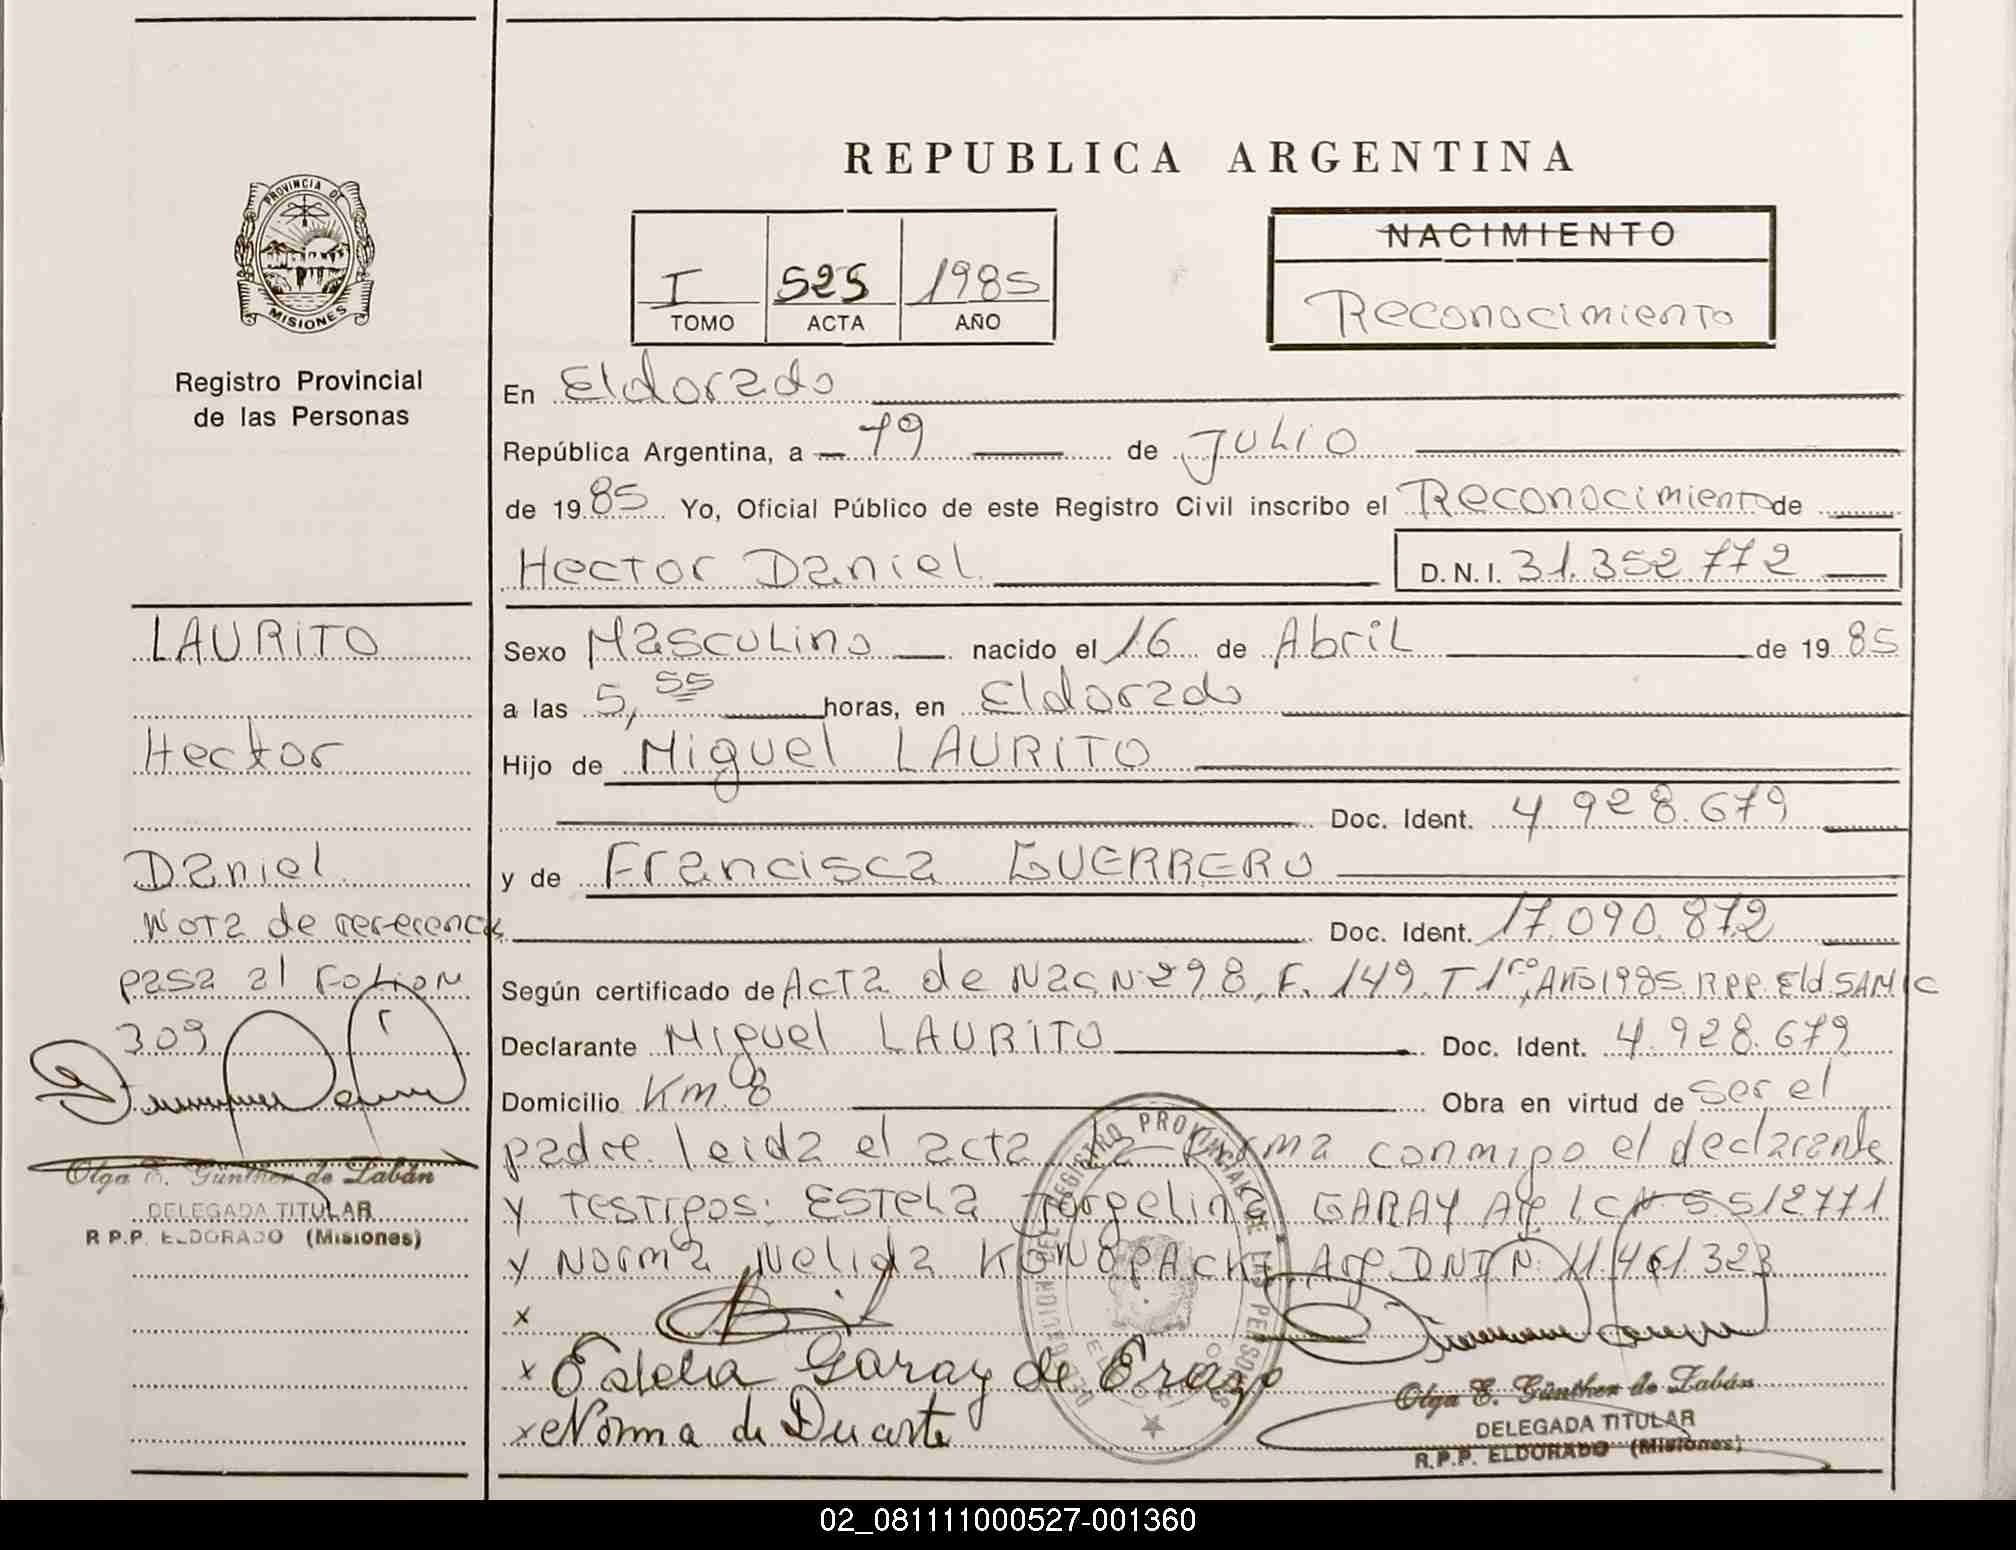 REPUBLICA ARGENTINA
PROVINCIA DE
MISIONES
Registro Provincial
de las Personas
I 525 1985
TOMO ACTA AÑO
NACIMIENTO
Reconocimiento
En Eldorado
República Argentina, a 19 de Julio
de 1985 Yo, Oficial Público de este Registro Civil inscribo el Reconocimiento de
Hector Daniel D.N.I. 31.352.772
LAURITO
Hector
Daniel
Nota de referencia
pasa al Folio N
309
Olga E. Günther de Zabán
DELEGADA TITULAR
R.P.P. ELDORADO (Misiones)
Sexo Masculino nacido el 16 de Abril de 1985
a las 5,55 horas, en Eldorado
Hijo de Miguel LAURITO
Doc. Ident. 4.928.679
y de Francisca GUERRERO
Doc. Ident. 17.090.872
Según certificado de Acta de Nac N 298, F. 149 T 1ro, Año 1985. RPP. Eld. SAMIC
Declarante Miguel LAURITO Doc. Ident. 4.928.679
Domicilio Km. 8 Obra en virtud de ser el
padre. leida el acta la firma conmigo el declarante
y Testigos: Estela Jorgelina GARAY Arg. LC N 5512771
y Norma Nelida KONOPACKI Arg DNI N 11.461.323
x
x Estela Garay de Erazo
x Norma de Duarte
DELEGACION DEL REGISTRO PROVINCIAL DE LAS PERSONAS
ELDORADO
Olga E. Günther de Zabán
DELEGADA TITULAR
R.P.P. ELDORADO (Misiones)
02_081111000527-001360